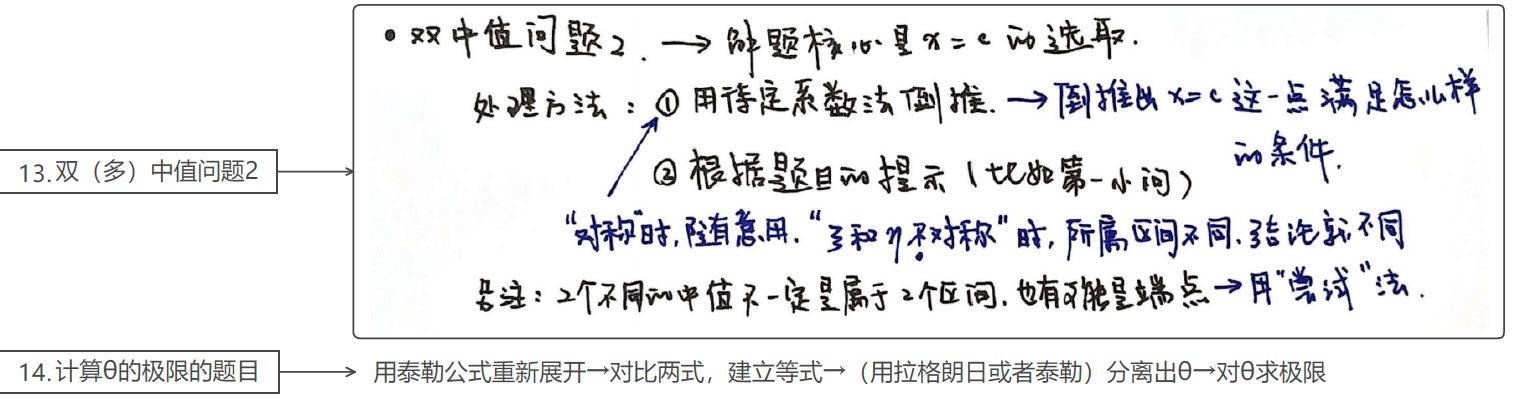 • 双中值问题2. → 解题核心是x=c的选取.
处理方法：① 用待定系数法倒推. → 倒推出x=c这一点满足怎么样
的条件.
② 根据题目的提示（比如第一小问）
13.双（多）中值问题2
“对称”时, 随意用. “ξ和η不对称”时, 所属区间不同, 结论就不同
备注：2个不同的中值不一定是属于2个区间, 也有可能是端点→用“尝试”法.
14.计算θ的极限的题目
用泰勒公式重新展开→对比两式，建立等式→（用拉格朗日或者泰勒）分离出θ→对θ求极限